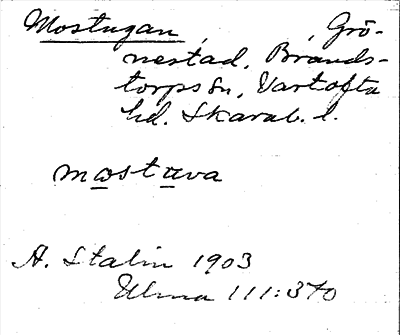 Mostugan, Grö-
nestad, Brands-
torps sn, Vartofta
hd. Skarab. l.
mostuva
A. Stalin 1903
Ulma 111:370